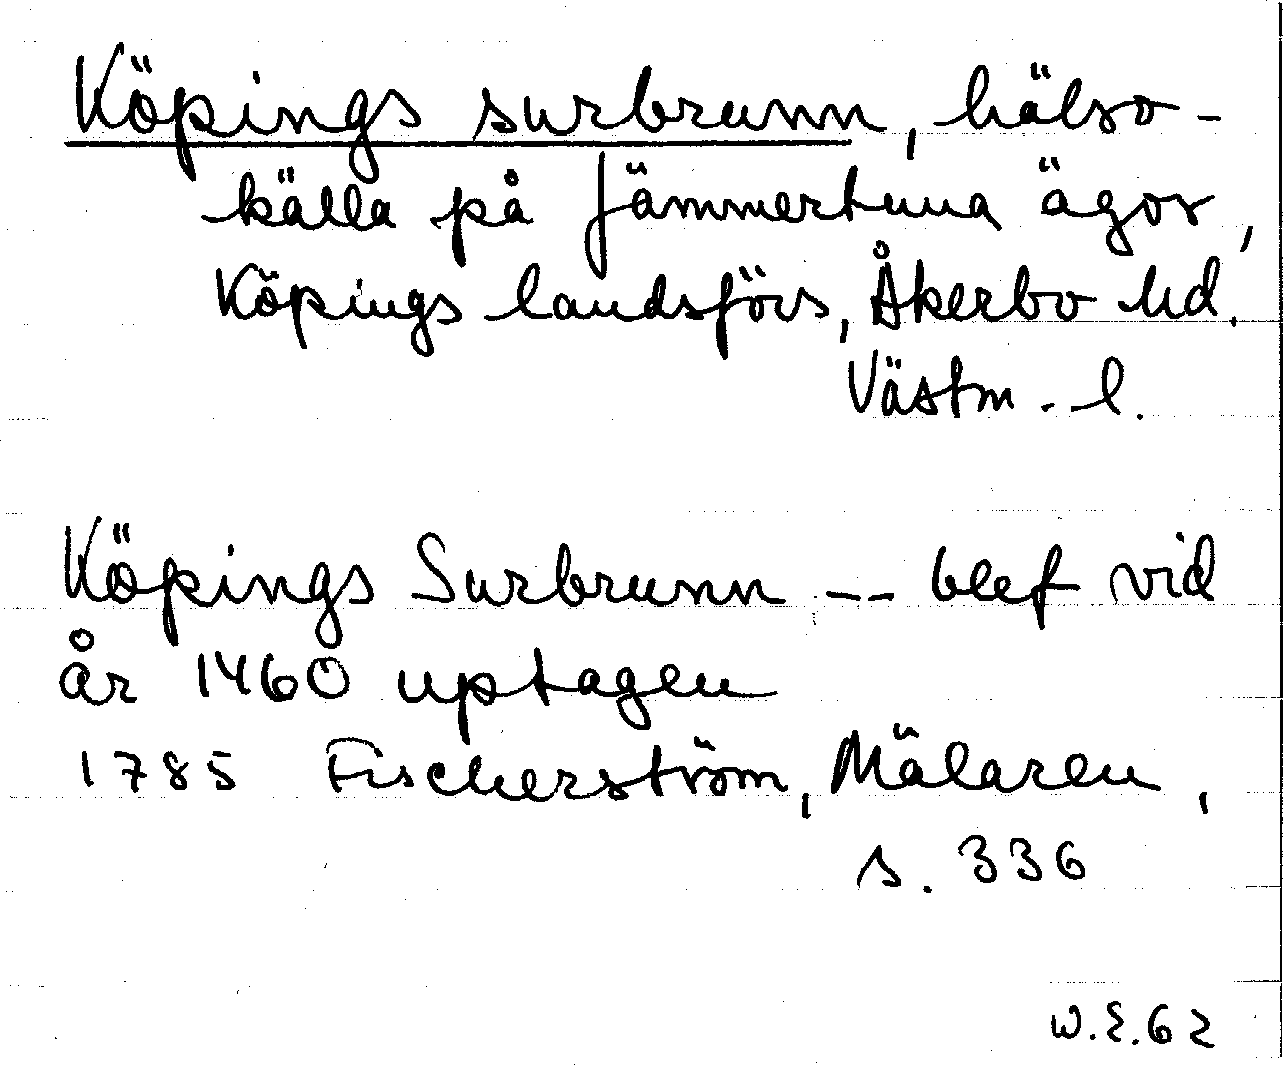 Köpings surbrunn, hälso-
källa på Jämmertuna ägor,
Köpings landsförs, Åkerbo hd.
Västm.l.
Köpings Surbrunn -- blef vid
år 1460 uptagen
1785 Fischerström, Mälaren,
s. 336
W.E.62